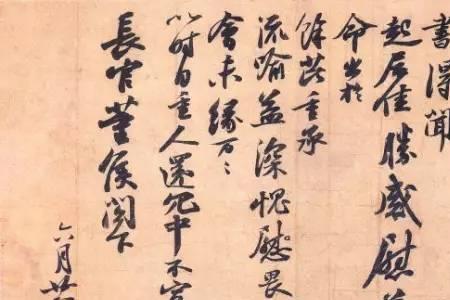 書得聞
起居佳勝感慰
命出於
餘芘重承
流喻益深愧畏
會未緣万〻
以时自重人還冗中不宣
長官董侯閤下
六月廿